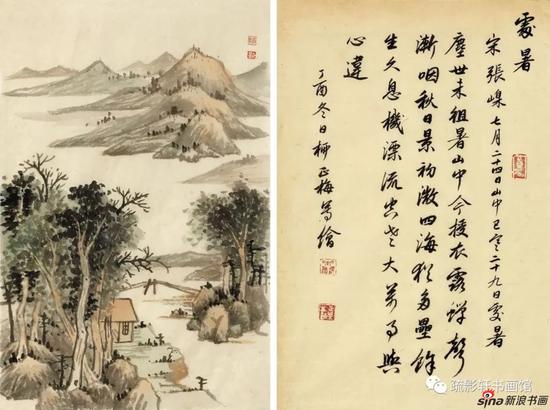 處暑
宋 張嵲 七月二十四日山中已寒二十九日處暑
塵世未徂暑山中今授衣露蟬聲
漸咽秋日景初微四海猶多壘餘
生久息機漂流空老大萬事與
心違
丁酉冬日柳正梅寫繪
疏影轩书画馆
sina新浪书画